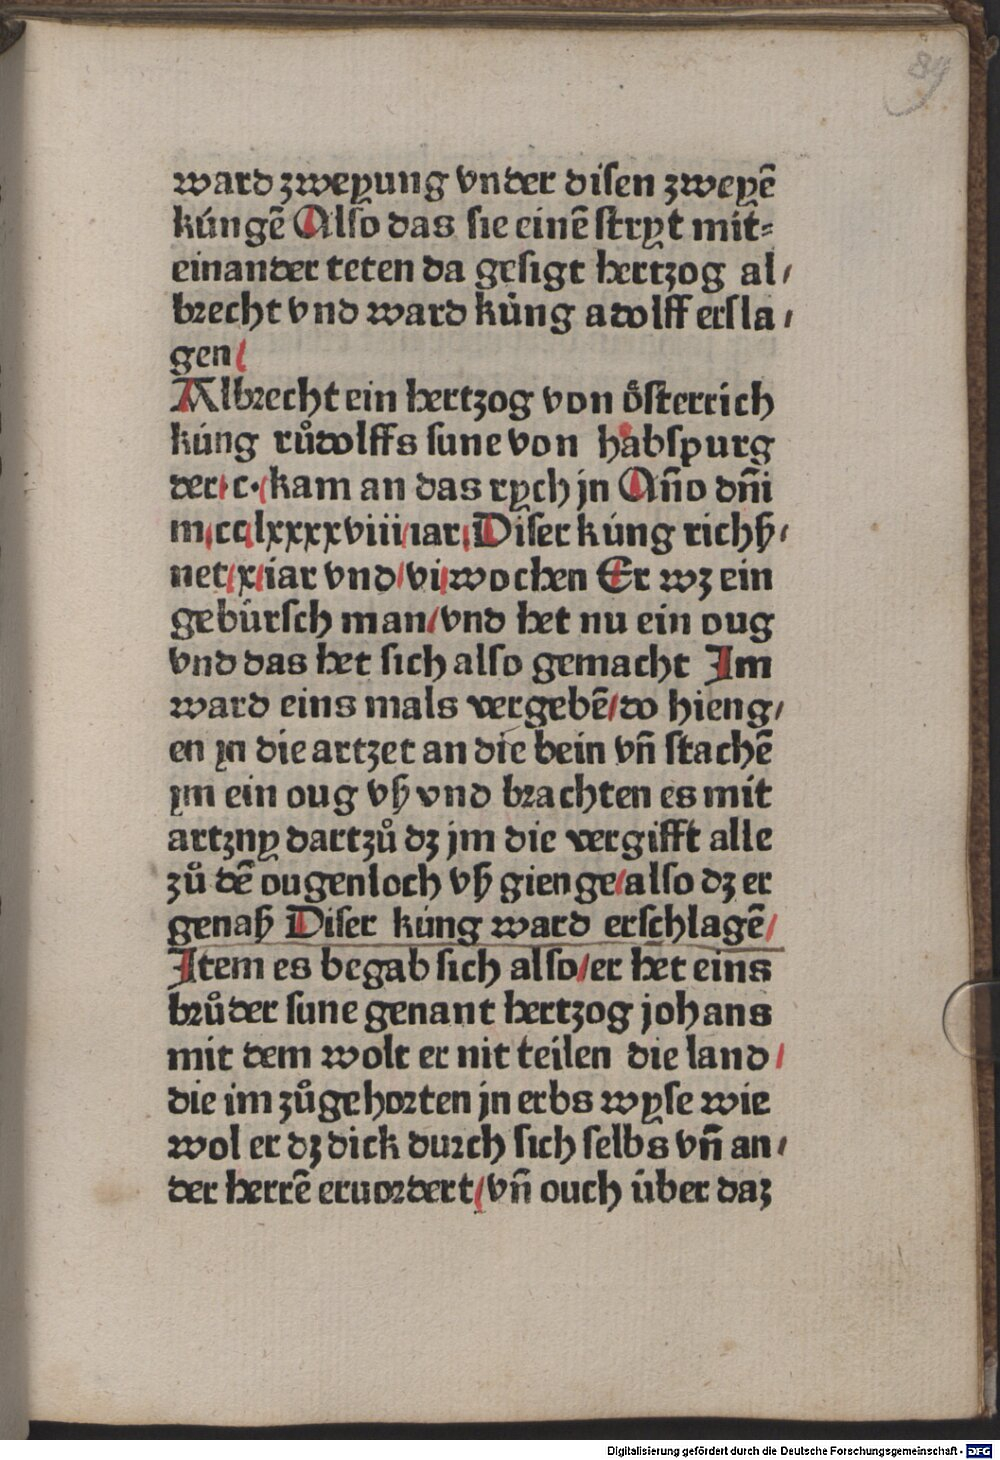 84
ward zweyung vnder disen zweyē
kúngē Also das sie einē stryt mit⸗
einander teten da gesigt hertzog al/
brecht vnd ward kúng adolff ersla/
gen/
Albrecht ein hertzog von ősterrich
kúng růdolffs sune von habspurg
der/c·/kam an das rych jn Año dñi
m/cc/lxxxxviii/iar/Diser kúng richß/
net/x/iar vnd/vi/wochen Er wz ein
gebúrsch man/vnd het nu ein oug
vnd das het sich also gemacht Im
ward eins mals vergebē/do hieng/
en yn die artzet an die bein vñ stachē
ym ein oug vß vnd brachten es mit
artzny dartzů dz jm die vergifft alle
zů dē ougenloch vß gienge/also dz er
genaß Diser kúng ward erschlagē/
Item es begab sich also/er het eins
brůder sune genant hertzog johans
mit dem wolt er nit teilen die land/
die im zůgehorten jn erbs wyse wie
wol er dz dick durch sich selbs vñ an/
der herrē eruordert/vñ ouch úber daz
Digitalisierung gefördert durch die Deutsche Forschungsgemeinschaft - DFG